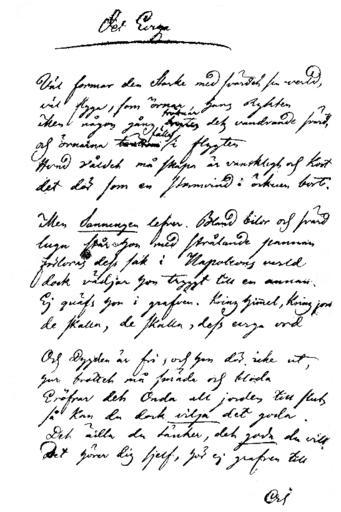 Det Evga
Väl formar den Starke med svärdet sin verld,
väl flyga, som örnar hans rykten
men någon gång brytes det vandrande svärd,
och örnarna fällas i flygten
Hvad våldet må skapa är vanskligt och kort
det dör som en stormvind i öcknen bort.
Men Sanningen lefver. Bland bilor och svärd
lugn står hon med strålande pannan
förlorar dess sak i Napoleons verld
dock vädjar hon tryggt till en annan.
Ej qväfs hon i grafven. Kring himmel, kring jord
de skallen, de skallen, dess evga ord
Och Dygden är fri, och hon dör icke ut,
hur brottet må smäda och blöda
Eröfrar det Onda all jorden till slut
så kan du dock vilja det goda.
Det ädla du tänker, det goda du vill
Det hörer dig sjelf, hör ej grafven till